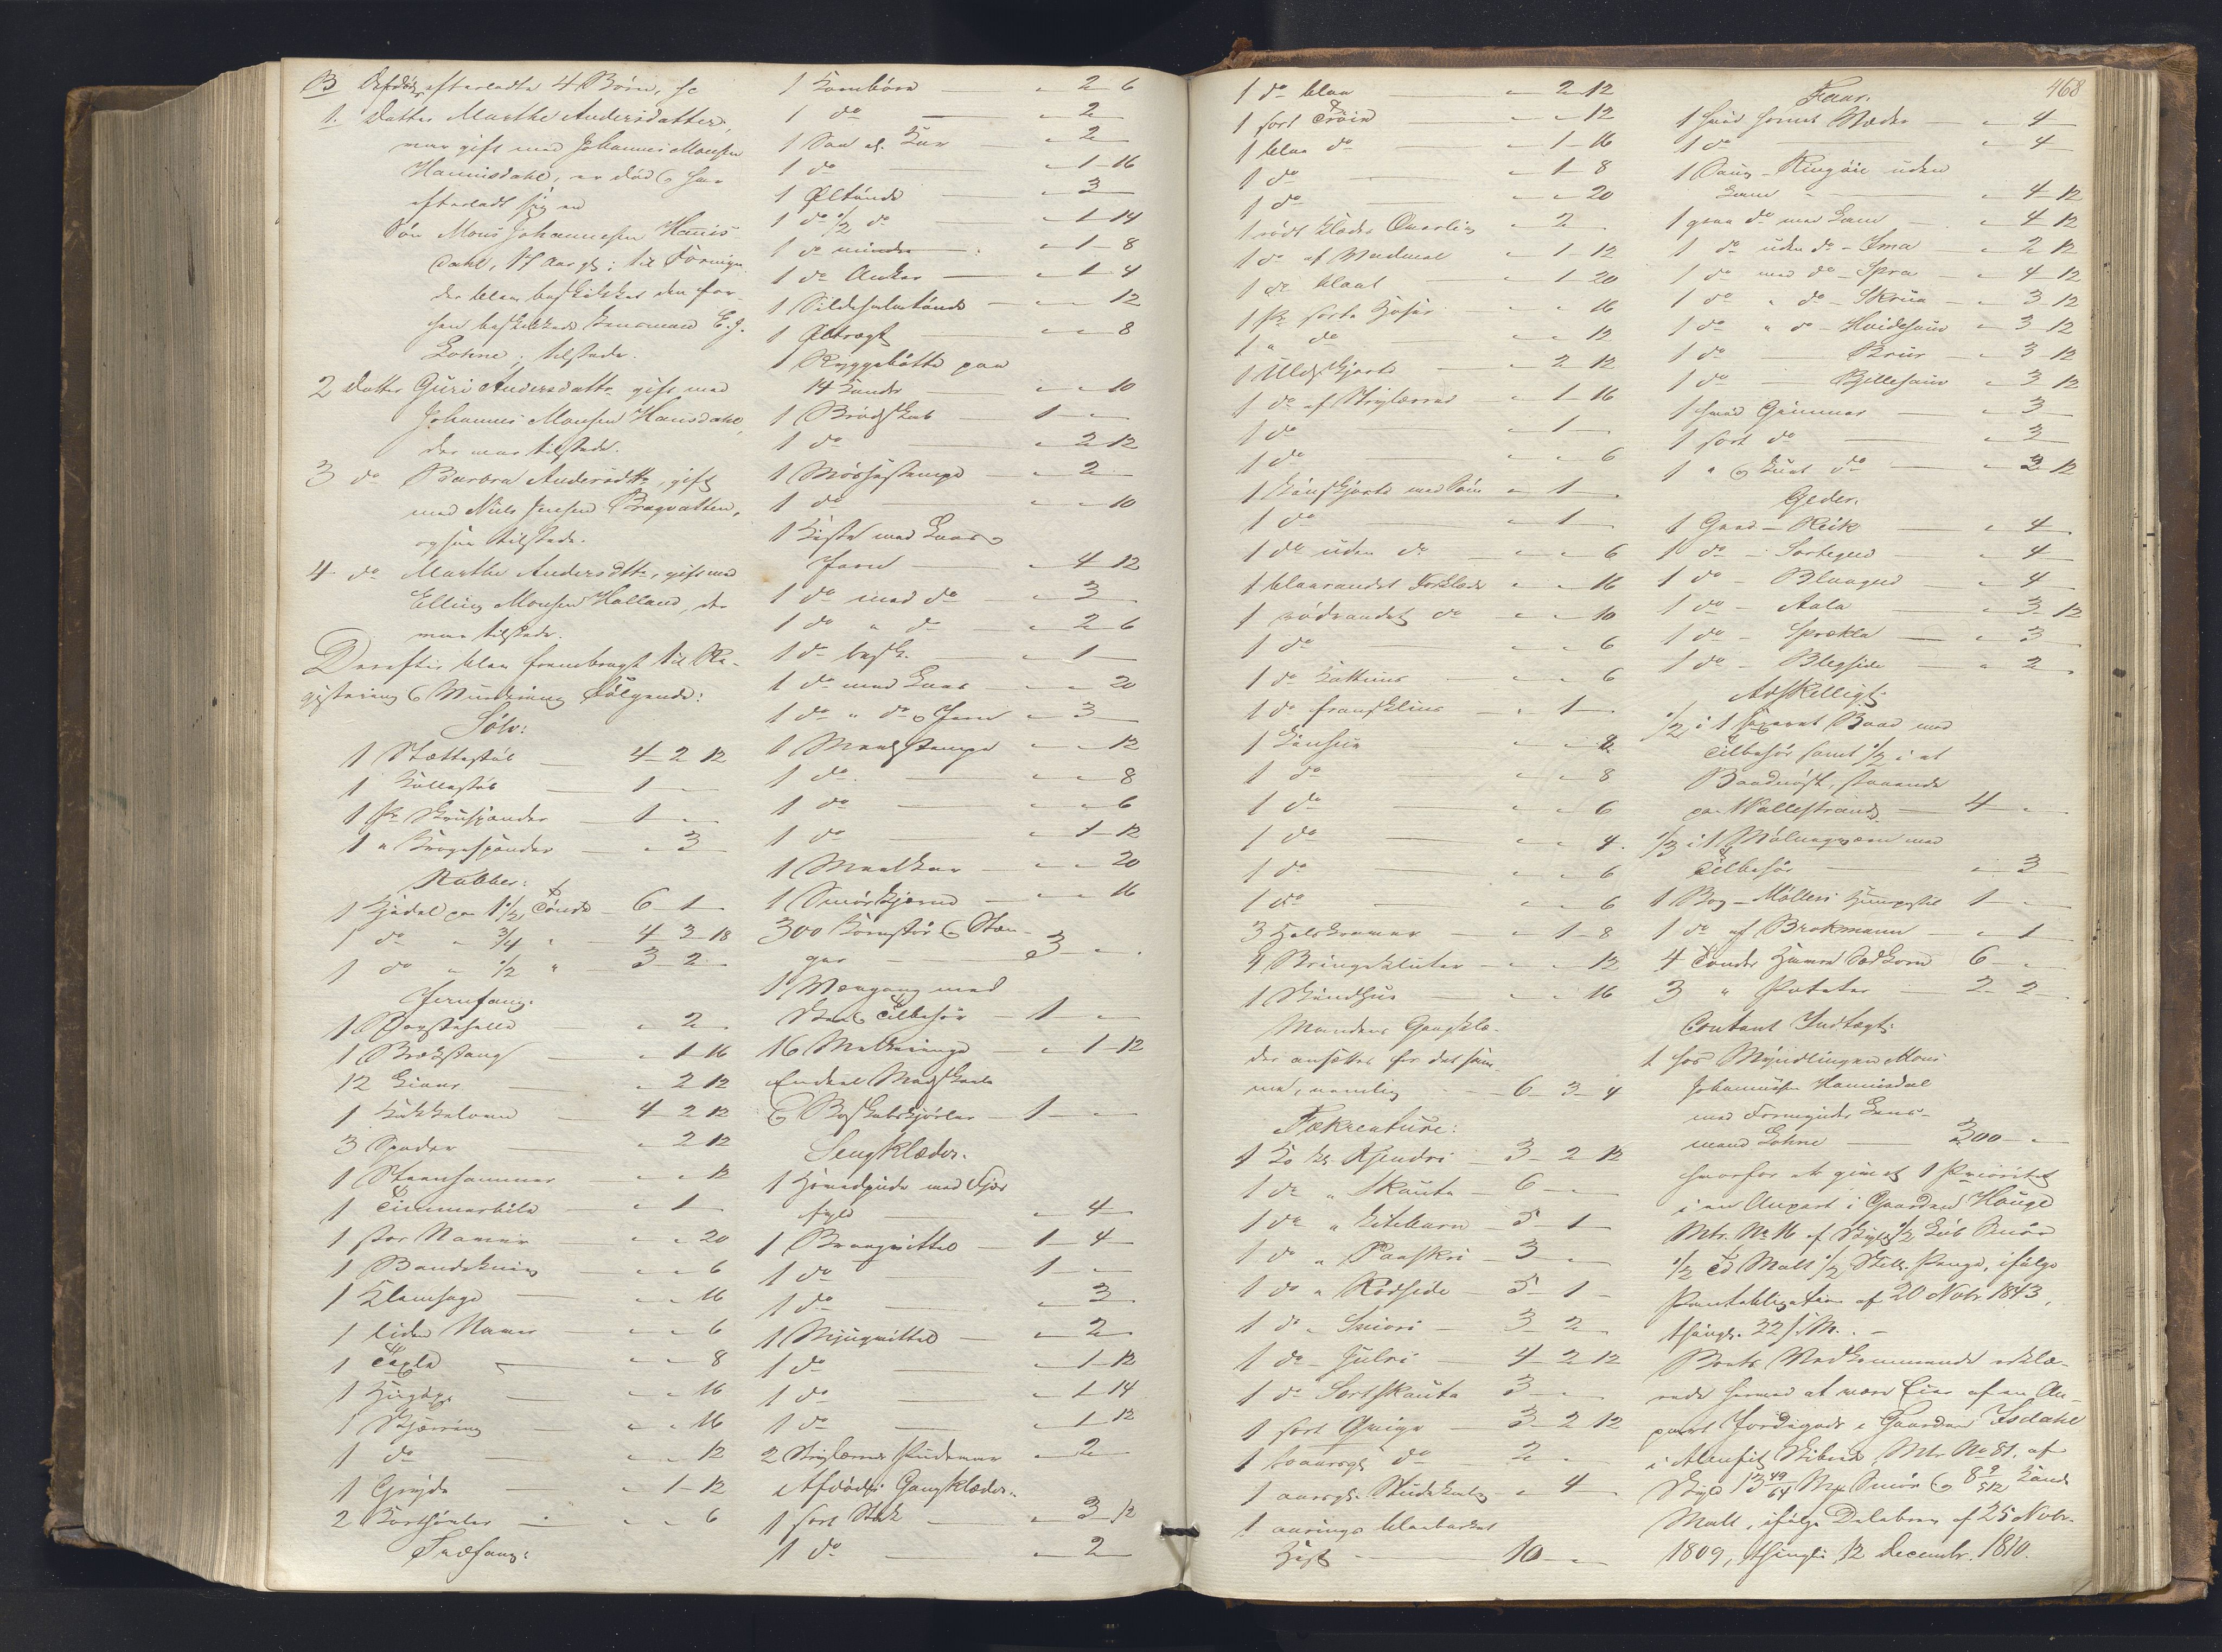 B Afdøde efterladte 4 Børn, sc
1. Datter Marthe Andersdatter,
var gift med Johannes Monsen
Hannisdahl, er død & har
efterladt sig en
Søn Mons Johannesen Hanis
dahl, 17 Aar gl: til Formyn
der blev beskikket den for
hen beskikkede Lensmand E. J.
Lohne; tilstede.
2 Datter Guri Andersdattr gift med
Johannes Monsen Hansdahl,
der var tilstede.
3 do Barbra Andersdttr, gift
med Niels Jensen Bragvatten,
ogsaa tilstede.
4 do Marthe Andersdttr, gift med
Elling Monsen Halland, der
var tilstede.
Derefter blev frembragt til Re-
gistrering & Vurdering Følgende:
Sølv:
1 Støttestøb 4 - 2 12
1 Kallestøb 1 -
1 Pr Skospænder 1 -
1 " Krogespænder - 3
Kobber:
1 Kjedel paa 1 1/2 Tønde 6 - 1
1 do " 3/4 " 4 - 3 - 18
1 do " 1/2 " 3 - 2
Jernfang:
1 - 2
1 Brækstang - 1 - 16
12 Liaar - 2 12
1 Kakkelovn 4 - 2 12
3 Spader - 2 12
1 Steenhammer - - 12
1 Tømmerbile - 1
1 stor Navar - - 20
1 Baandekniv - - 6
1 Klemsage - - 16
1 liden Navar - - 6
1 Texle - - 8
1 Hugøxe - - 16
1 Skjæring - - 16
1 do - - 12
1 Gryde - 1 - 12
2 - - 6
Træfang:
1 Kornbøre - 2 6
1 do - 2
1 Saa el. Kar - 2
1 do - 1 - 16
1 Øltønde - 3
1 do 1/2 do - 1 - 14
1 do mindre - 1 - 8
1 do Anker - 1 - 4
1 Sildesaltetønde - - 12
1 Øltragt - - 8
1 Ryggebøtte paa
14 Kander - - 10
1 Brødskab 1 -
1 do - 2 12
1 - 2
1 do - - 10
1 Kiste med Laas &
Jern - 4 - 12
1 do med do - 3
1 do " do - 2 6
1 do besk. - 1
1 do med Laas - - 20
1 do " do & Jern - 3
1 - - 12
1 do - - 8
1 do - - 6
1 do - 1 - 12
1 - - 20
1 Smørkjerne - - 16
300 Kornstør & Stæn-
ger 3 -
1 Vævgang med
Tilbehør 1 -
16 Melkeringe - 1 - 12
Endeel Madskaale
& 1 -
Sengklæder.
1 Hovedpude med Fjær
fyld - 4
1 Braagvittel 1 - 4
1 do 1 -
1 do - 3
1 - 2
1 do - 1 - 12
1 do - 1 14
1 do - 1 12
2 Strylærreds Pudevaar - 2
Afdødes Gangklæder.
1 sort Stak - 3 - 12
1 do - 2
468
1 do blaa - 2 - 12
1 sort Trøie - - 12
1 blaa do - 1 - 16
1 do - 1 8
1 do - - 20
1 rødt Klædes Overliv - 2
1 do af Vadmel - 1 - 12
1 do blaat - 1 - 20
1 Pr sorte Hoser - - 16
1 " do - - 12
1 Uldskjorte - 2 12
1 do af Strylærred - 1 - 16
1 do - 1
1 do - - 6
1 Linskjorte med Søm - 1
1 do - 1
1 do uden do - - 6
1 blaarandet Forklæde - - 16
1 rødrandet do - - 10
1 do - - 6
1 do Kattuns - - 6
1 do fransklins - 1
1 Linhue - - 8
1 do - - 8
1 do - - 6
1 do - - 4
1 do - - 6
1 do - - 6
3 Halskraver - 1 - 8
4 Bringekluter - - 12
1 Skindhue - - 16
Mandens Gangklæ-
der ansættes for det sam
me, nemlig 6 - 3 - 4
Fækreature:
1 Ko kl. Kjendri 3 - 2 12
1 do " Skaute 6 -
1 do " Litebarn 5 - 1
1 do " Paaskri 3 -
1 do " Rødside 5 - 1
1 do " Sniori 3 - 2
1 do - Julri 4 - 2 12
1 do Sortskaute 3 -
1 sort Qvige 3 - 2 12
1 toaarsgl. do 2 -
1 aarsgl. Studekalv - 4
1 aarings blaabarket
Hest 10 -
Faar.
1 hvid hornet Væder - 4
1 do - 4
1 Sau - Ringøie uden
Lam - 4 12
1 graa do med Lam - 4 12
1 do uden do - Sma - 2 12
1 do med do - Spra - 4 - 12
1 do " do - Skrua - 3 - 12
1 do " do - Hvidesau - 3 - 12
1 do - Brur - 3 - 12
1 do - Bjillesau - 3 12
1 hvid Gimmer - 3
1 sort do - 3
1 " & do - 2 - 12
Geder.
1 Geed - Keik - 4
1 do - Sortegeed - 4
1 do - Blaageed - 4
1 do - Aala - 3 - 12
1 do - Sprækla - 3
1 do - Blegside - 2
Adskilligt.
1/2 i 1 Baad med
Tilbehør samt 1/2 i et
Baadnøst, staaende
paa Vallestrand 4 -
1/3 i 1 Møllenqværn med
Tilbehør - 3
1 Bog - Møllers Huuspostil 1 -
1 do af Brokmann - 1
4 Tønder Havre Sædkorn 6 -
3 " Poteter 2 - 2
Contant Indtægt:
1 hos Myndlingen Mons
Johannesen Hannisdal
med Formynder Lens-
mand Lohne 300 -
hvorfor er givet 1 Prioritet
i en Anpart i Gaarden Hauge
Mtr. No 16 af Skyld 1/2 Løb Smør
1/2 Td Malt 1/2 Penge, ifølge
Pantobligation af 20 Novbr 1843,
thingl. 22 s. M.
Boets Vedkommende erklæ-
rede hermed at være Eier af en An-
part Jordegods i Gaarden Isdahl
i Alenfit Skibrede Mtr. No 81. af
Skyld 13 49/64 Mrk Smør & 8 9/512 Kande
Malt, ifølge Delebrev af 25 Novbr.
1809, thingl. 12 Decembr. 1810.